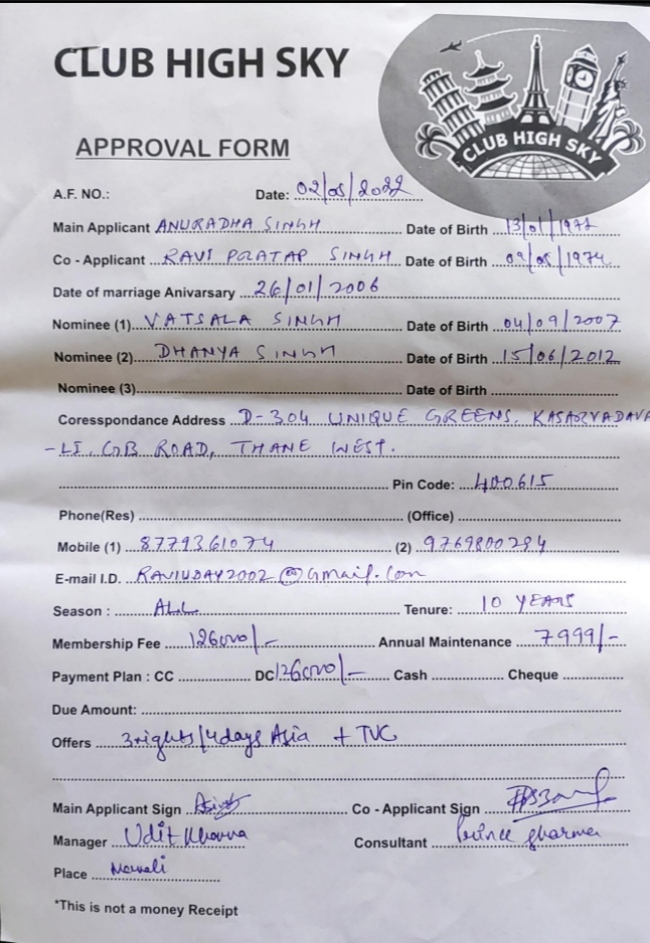 CLUB HIGH SKY
CLUB HIGH SKY
APPROVAL FORM
A.F. NO.: Date: 02/05/2022
Main Applicant ANURADHA SINGH Date of Birth 13/01/1977
Co - Applicant RAVI PRATAP SINGH Date of Birth 02/05/1974
Date of marriage Anivarsary 26/01/2006
Nominee (1) VATSALA SINGH Date of Birth 04/09/2007
Nominee (2) DHANYA SINGH Date of Birth 15/06/2012
Nominee (3) Date of Birth
Coresspondance Address D-304 UNIQUE GREENS, KASARVADAVA
-LI, GB ROAD, THANE WEST.
Pin Code: 400615
Phone(Res) (Office)
Mobile (1) 8779361074 (2) 9769800294
E-mail I.D. RAVIUDAY2002@Gmail.com
Season : ALL Tenure: 10 YEARS
Membership Fee 126000/- Annual Maintenance 7999/-
Payment Plan : CC DC 126000/- Cash Cheque
Due Amount:
Offers 3nights/4days Asia + TVC
Main Applicant Sign Co - Applicant Sign
Manager Udit Khanna Consultant Prince Sharma
Place
*This is not a money Receipt